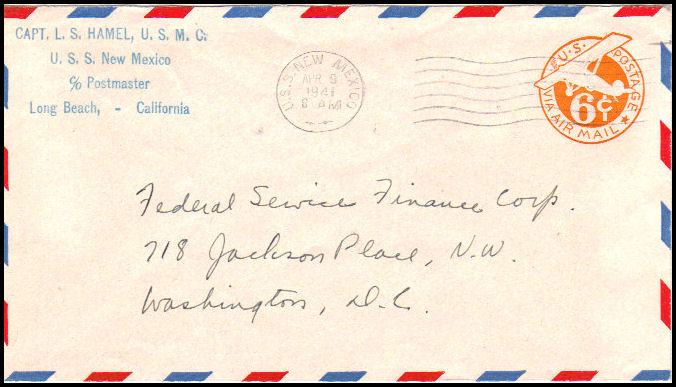 CAPT. L. S. HAMEL, U. S. M. C.
U. S. S. New Mexico
c/o Postmaster
Long Beach, - California
U.S.S. NEW MEXICO
APR 9
1941
8 AM
U.S. POSTAGE
6¢
VIA AIR MAIL
Federal Service Finance Corp.
718 Jackson Place, N.W.
Washington, D.C.